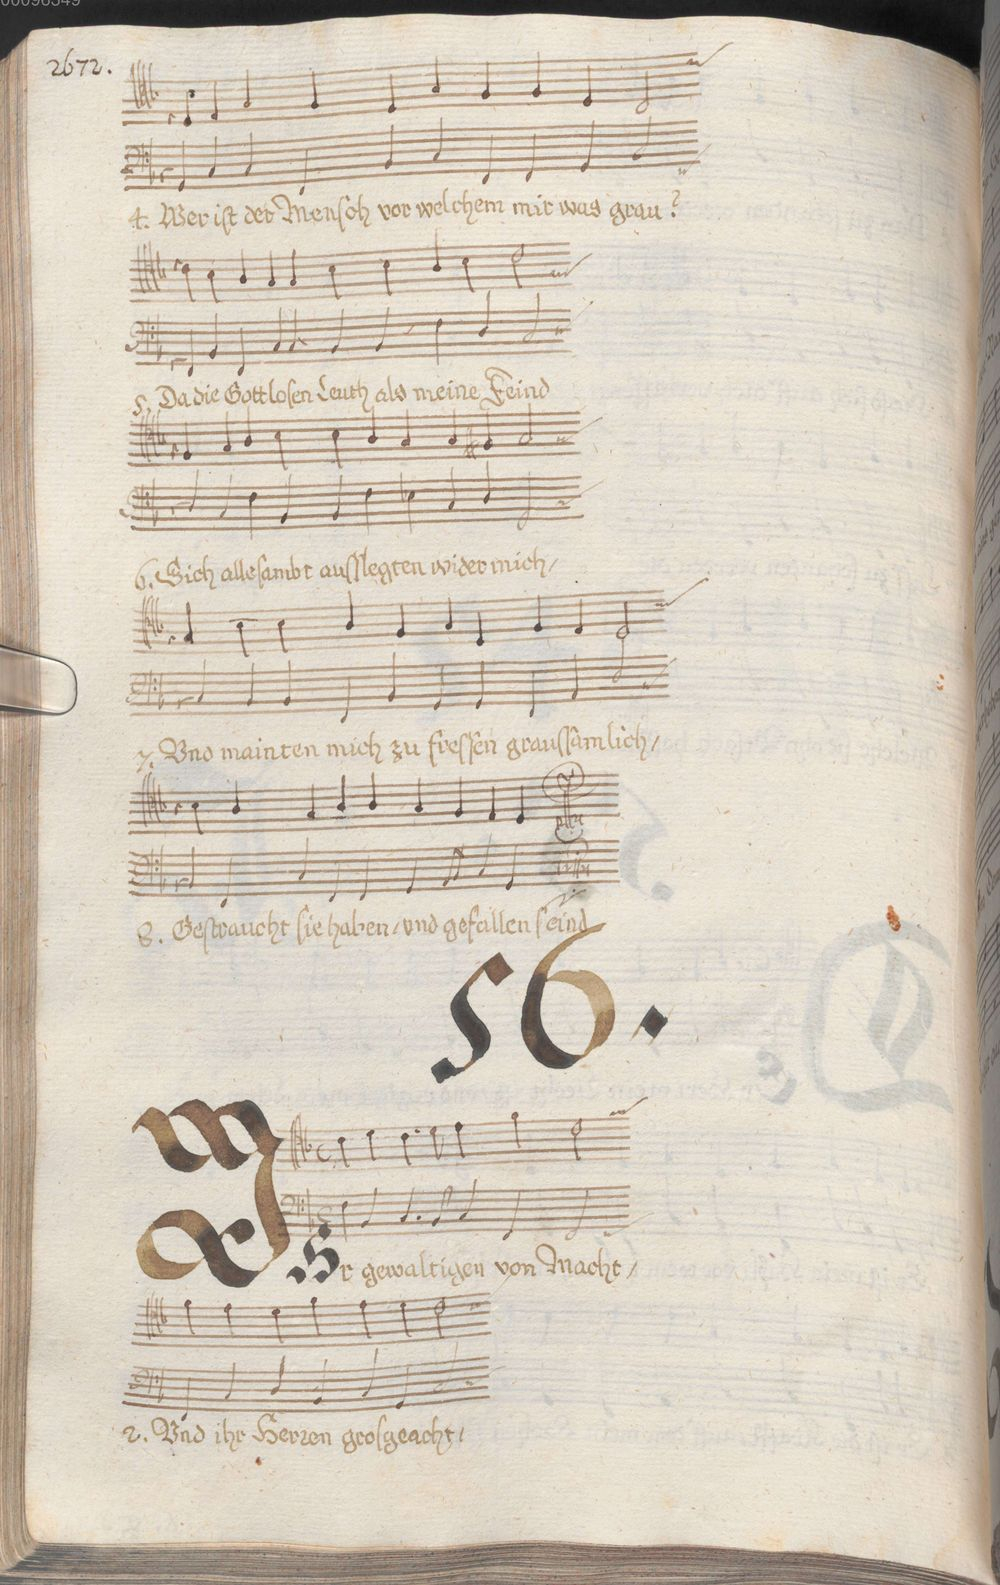 00096349
2672.
4. Wer ist der Mensch vor welchem mir was grau?
5. Da die Gottlosen Leuth als meine Feind
6. Sich allesambt ausslegten wider mich/
7. Vnd mainten mich zu fressen graussamlich/
8. Gestraucht sie haben/vnd gefallen seind
56.
IHr gewaltigen von Macht/
2. Vnd ihr Herren grosgeacht/